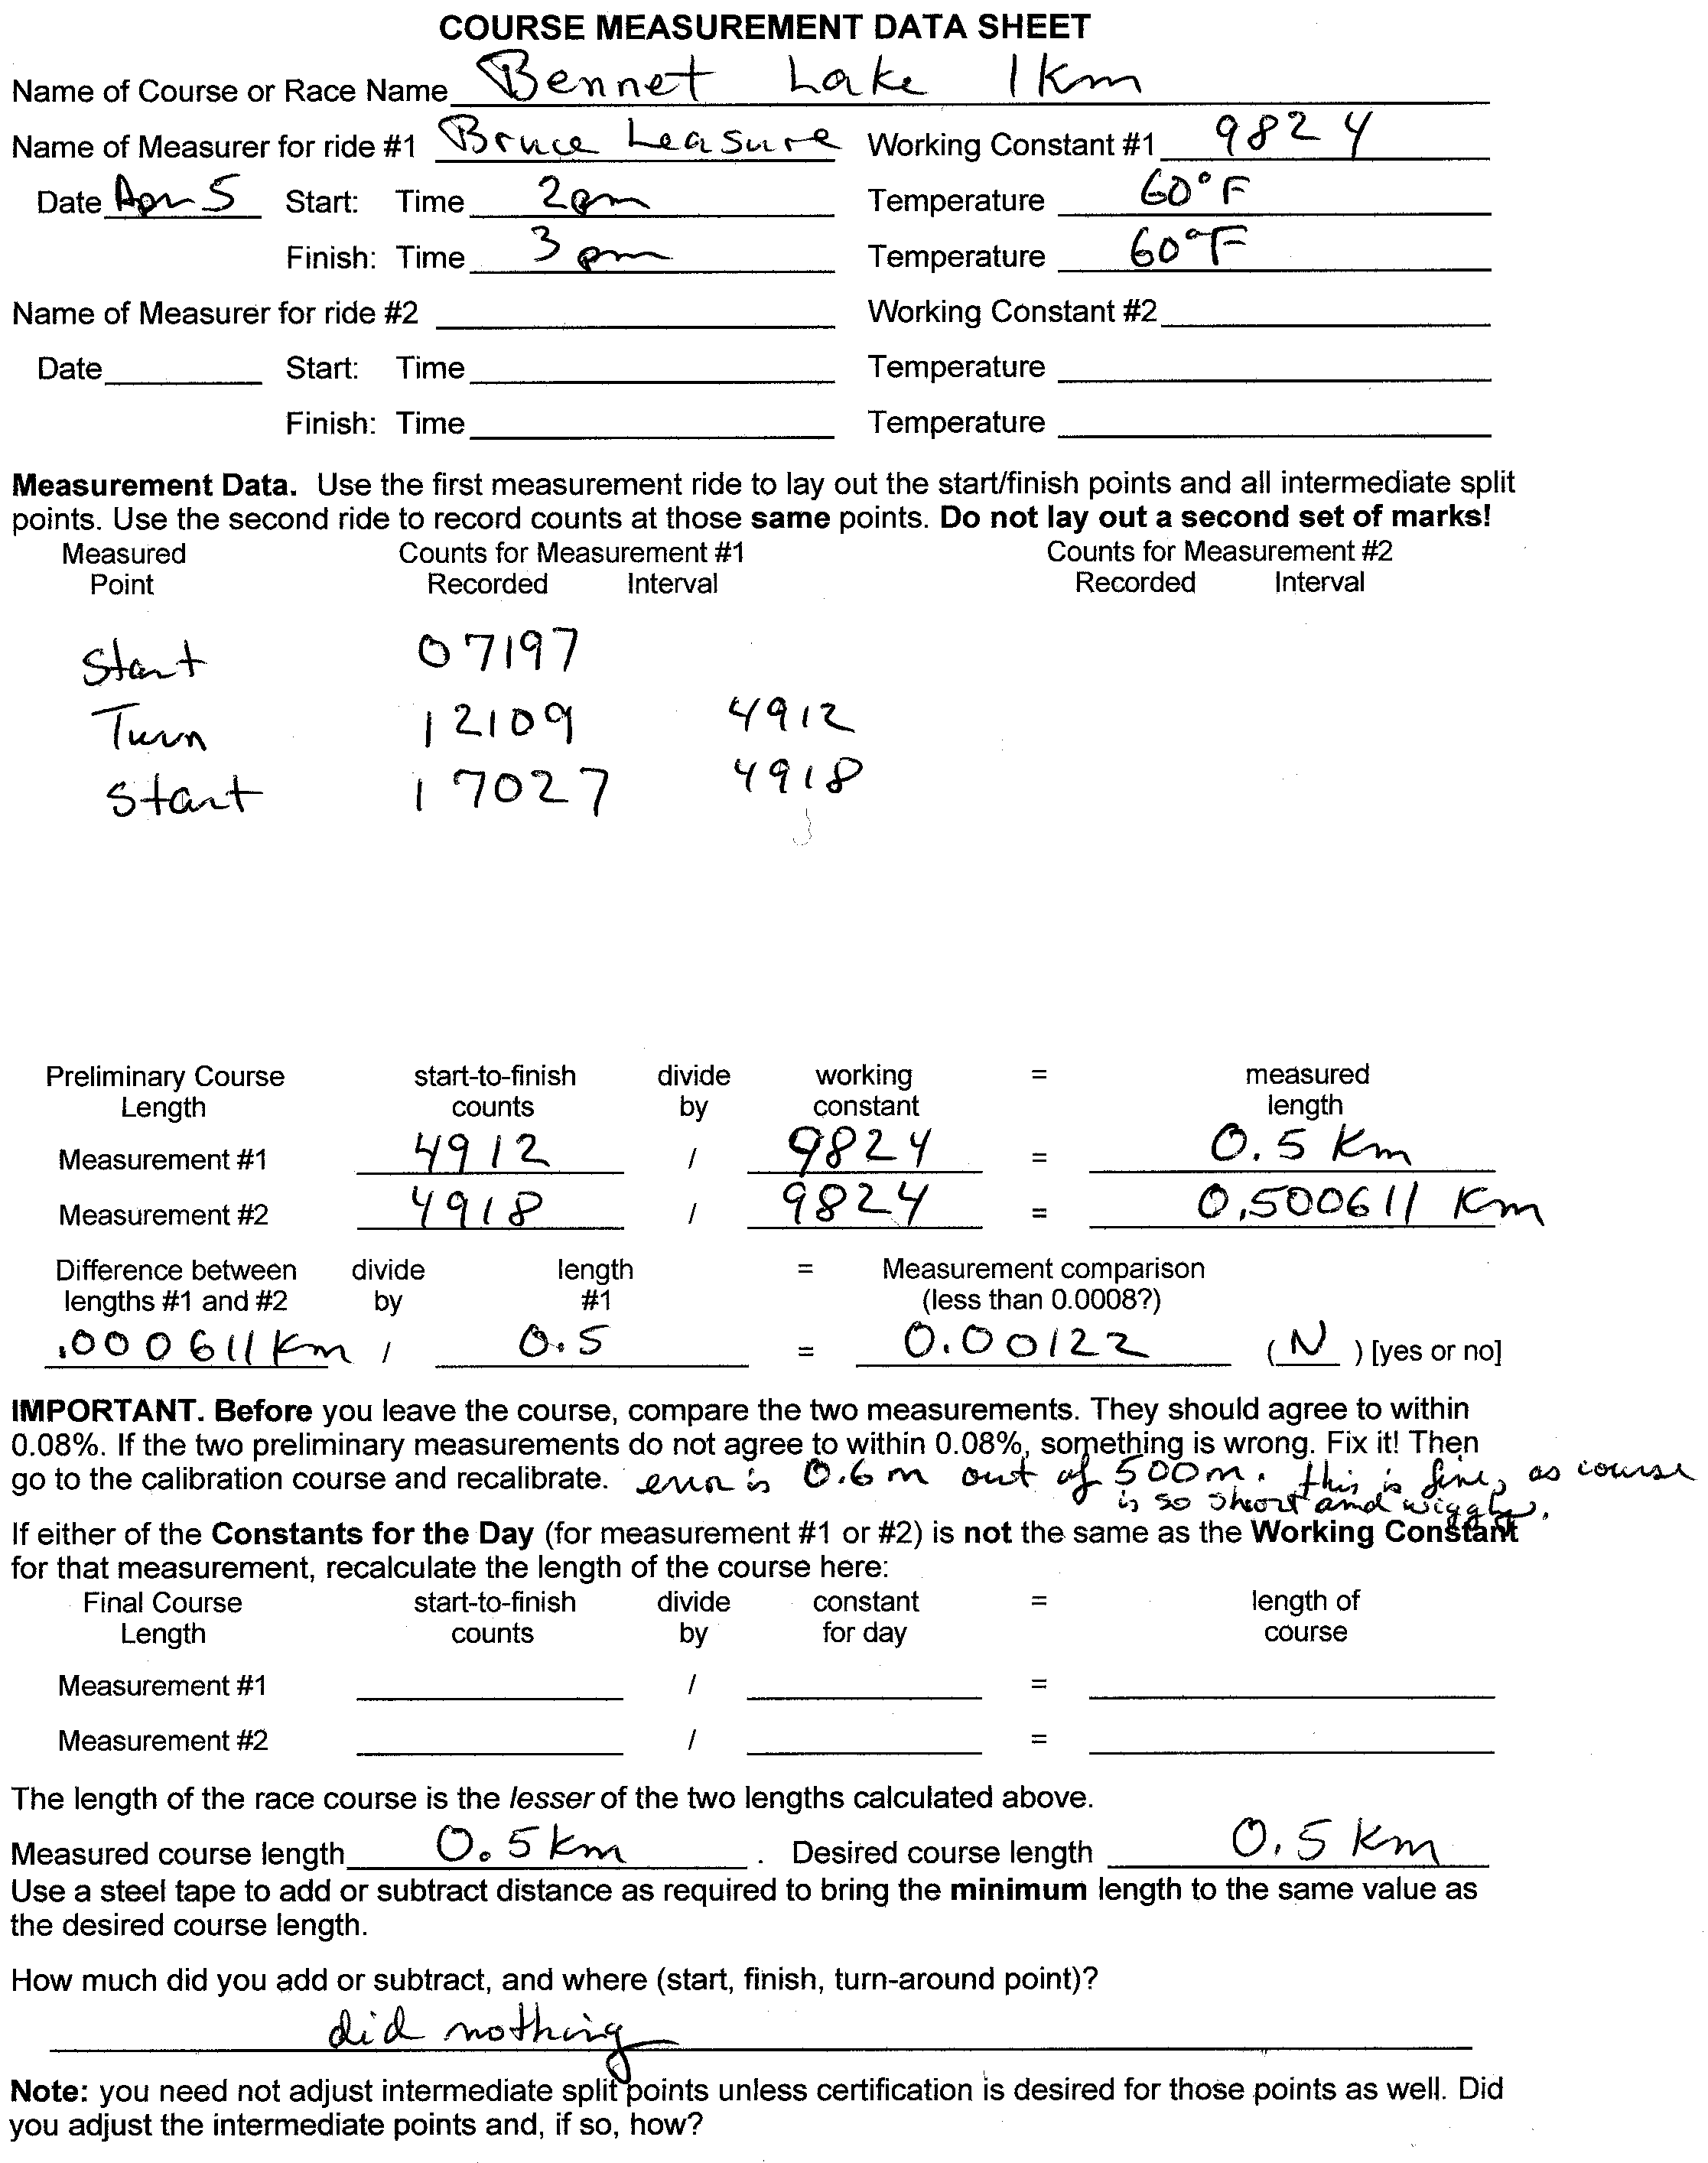 COURSE MEASUREMENT DATA SHEET
Name of Course or Race Name Bennet Lake 1 Km
Name of Measurer for ride #1 Bruce Leasure Working Constant #1 9824
Date Apr 5 Start: Time 2pm Temperature 60°F
Finish: Time 3 pm Temperature 60°F
Name of Measurer for ride #2 Working Constant #2
Date Start: Time Temperature
Finish: Time Temperature
Measurement Data. Use the first measurement ride to lay out the start/finish points and all intermediate split
points. Use the second ride to record counts at those same points. Do not lay out a second set of marks!
Measured Counts for Measurement #1 Counts for Measurement #2
Point Recorded Interval Recorded Interval
Start 07197
Turn 12109 4912
Start 17027 4918
Preliminary Course start-to-finish divide working = measured
Length counts by constant length
Measurement #1 4912 / 9824 = 0.5 Km
Measurement #2 4918 / 9824 = 0.500611 Km
Difference between divide length = Measurement comparison
lengths #1 and #2 by #1 (less than 0.0008?)
.000611 Km / 0.5 = 0.00122 ( N ) [yes or no]
IMPORTANT. Before you leave the course, compare the two measurements. They should agree to within
0.08%. If the two preliminary measurements do not agree to within 0.08%, something is wrong. Fix it! Then
go to the calibration course and recalibrate. error is 0.6 m out of 500m. this is fine, as course
is so short and wiggly.
If either of the Constants for the Day (for measurement #1 or #2) is not the same as the Working Constant
for that measurement, recalculate the length of the course here:
Final Course start-to-finish divide constant = length of
Length counts by for day course
Measurement #1 / =
Measurement #2 / =
The length of the race course is the lesser of the two lengths calculated above.
Measured course length 0.5 km . Desired course length 0.5 Km
Use a steel tape to add or subtract distance as required to bring the minimum length to the same value as
the desired course length.
How much did you add or subtract, and where (start, finish, turn-around point)?
did nothing
Note: you need not adjust intermediate split points unless certification is desired for those points as well. Did
you adjust the intermediate points and, if so, how?